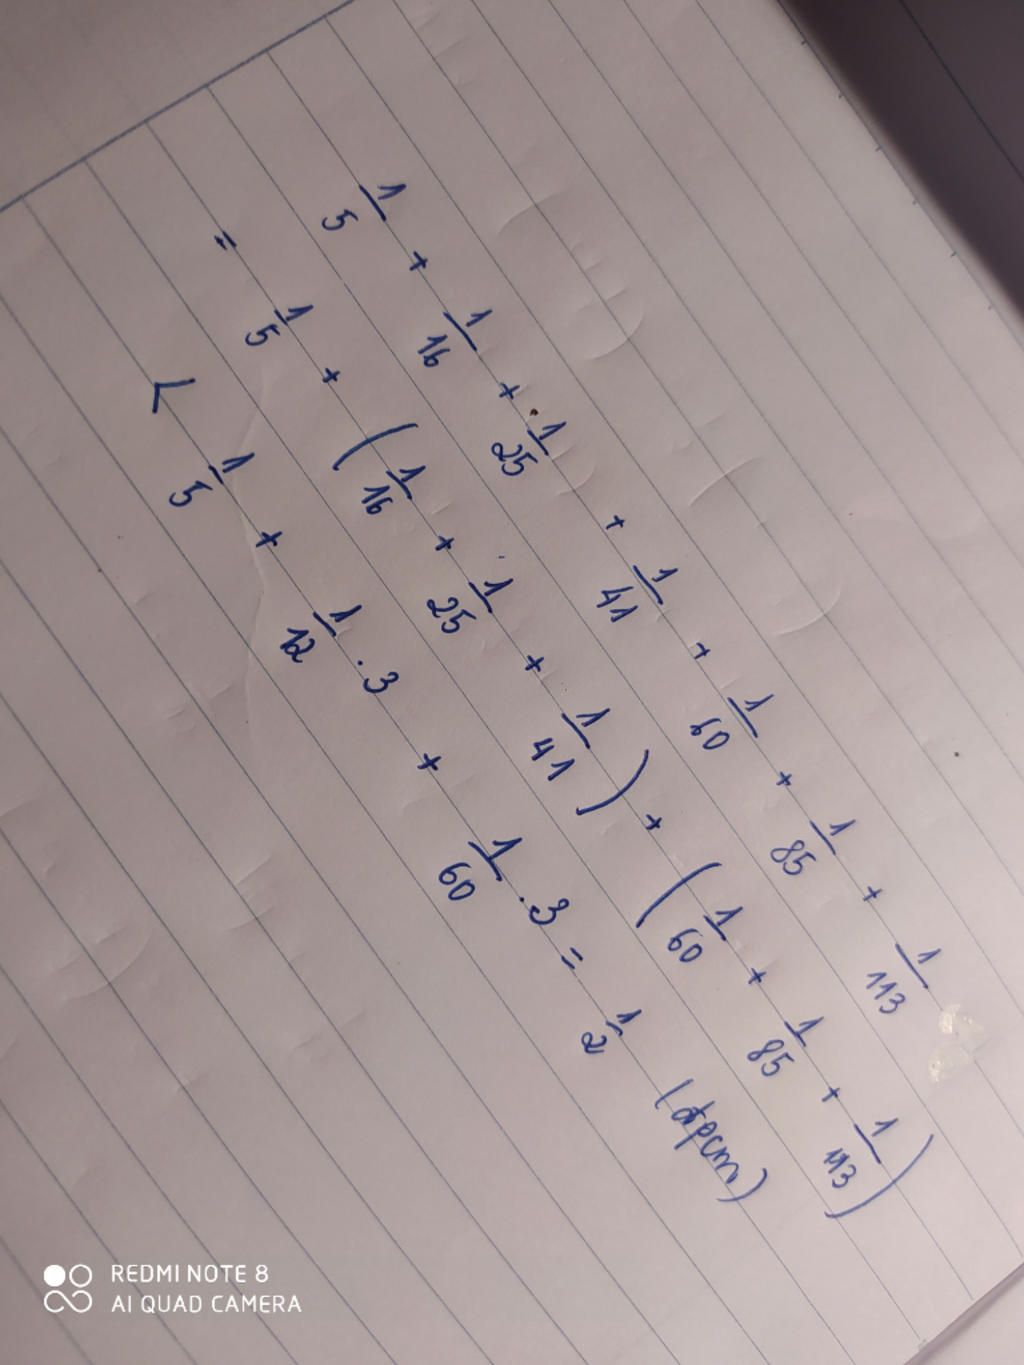 1/5 + 1/16 + 1/25 + 1/41 + 1/60 + 1/85 + 1/113
= 1/5 + (1/16 + 1/25 + 1/41) + (1/60 + 1/85 + 1/113)
< 1/5 + 1/12 . 3 + 1/60 . 3 = 1/2 (đpcm)
REDMI NOTE 8
AI QUAD CAMERA